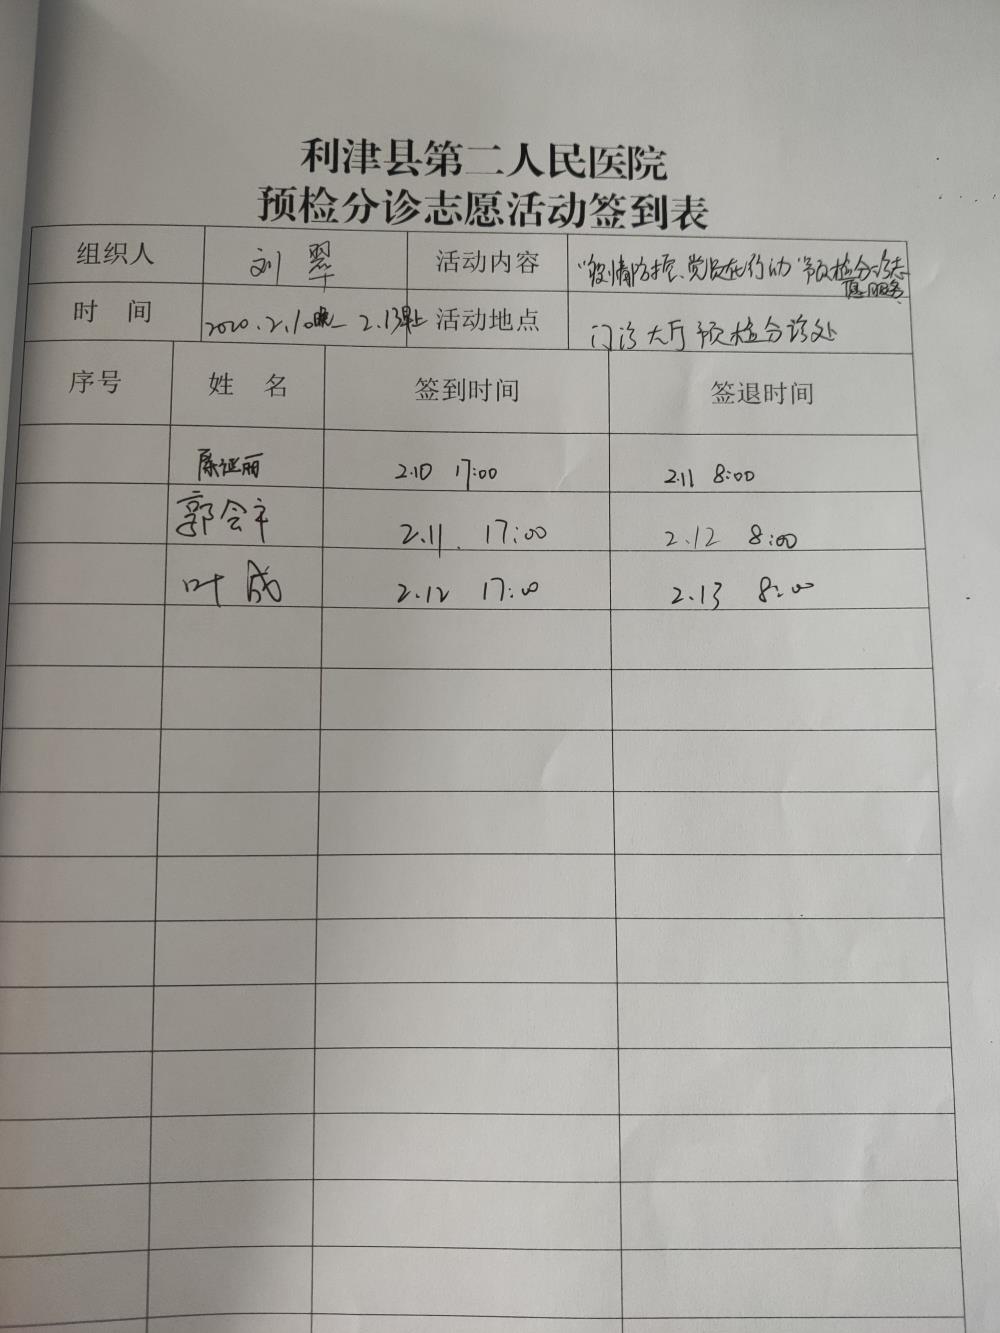 利津县第二人民医院
预检分诊志愿活动签到表
组织人 刘翠 活动内容 "疫情防控、党员在行动"预检分诊志愿服务
时 间 2020.2.10晚—2.13早上 活动地点 门诊大厅预检分诊处
序号 姓 名 签到时间 签退时间
2.10 17:00 2.11 8:00
郭会 2.11. 17:00 2.12 8:00
叶成 2.12 17:00 2.13 8:00